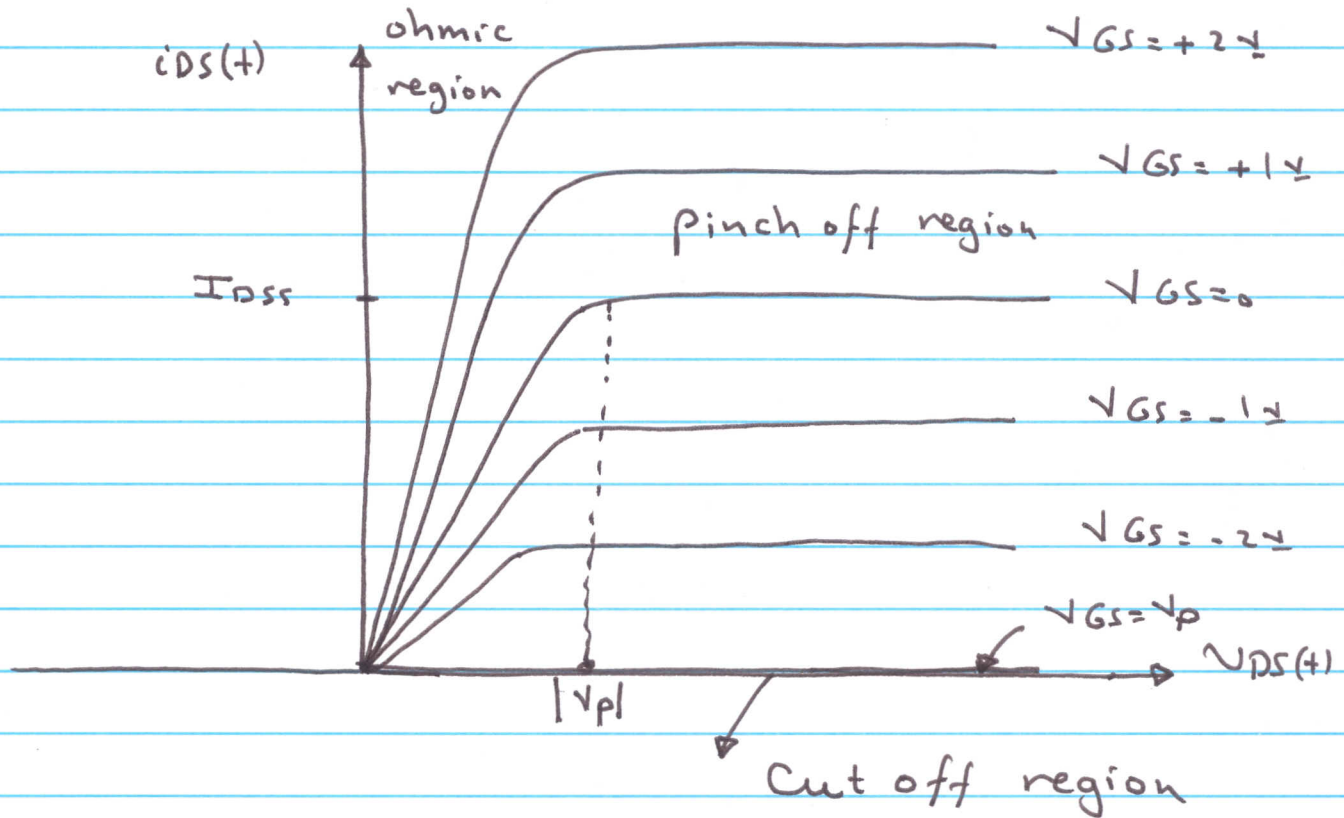 ohmic
region
iDS(t)
VGS=+2V
VGS=+1V
pinch off region
IDSS
VGS=0
VGS=-1V
VGS=-2V
VGS=Vp
VDS(t)
|Vp|
Cut off region